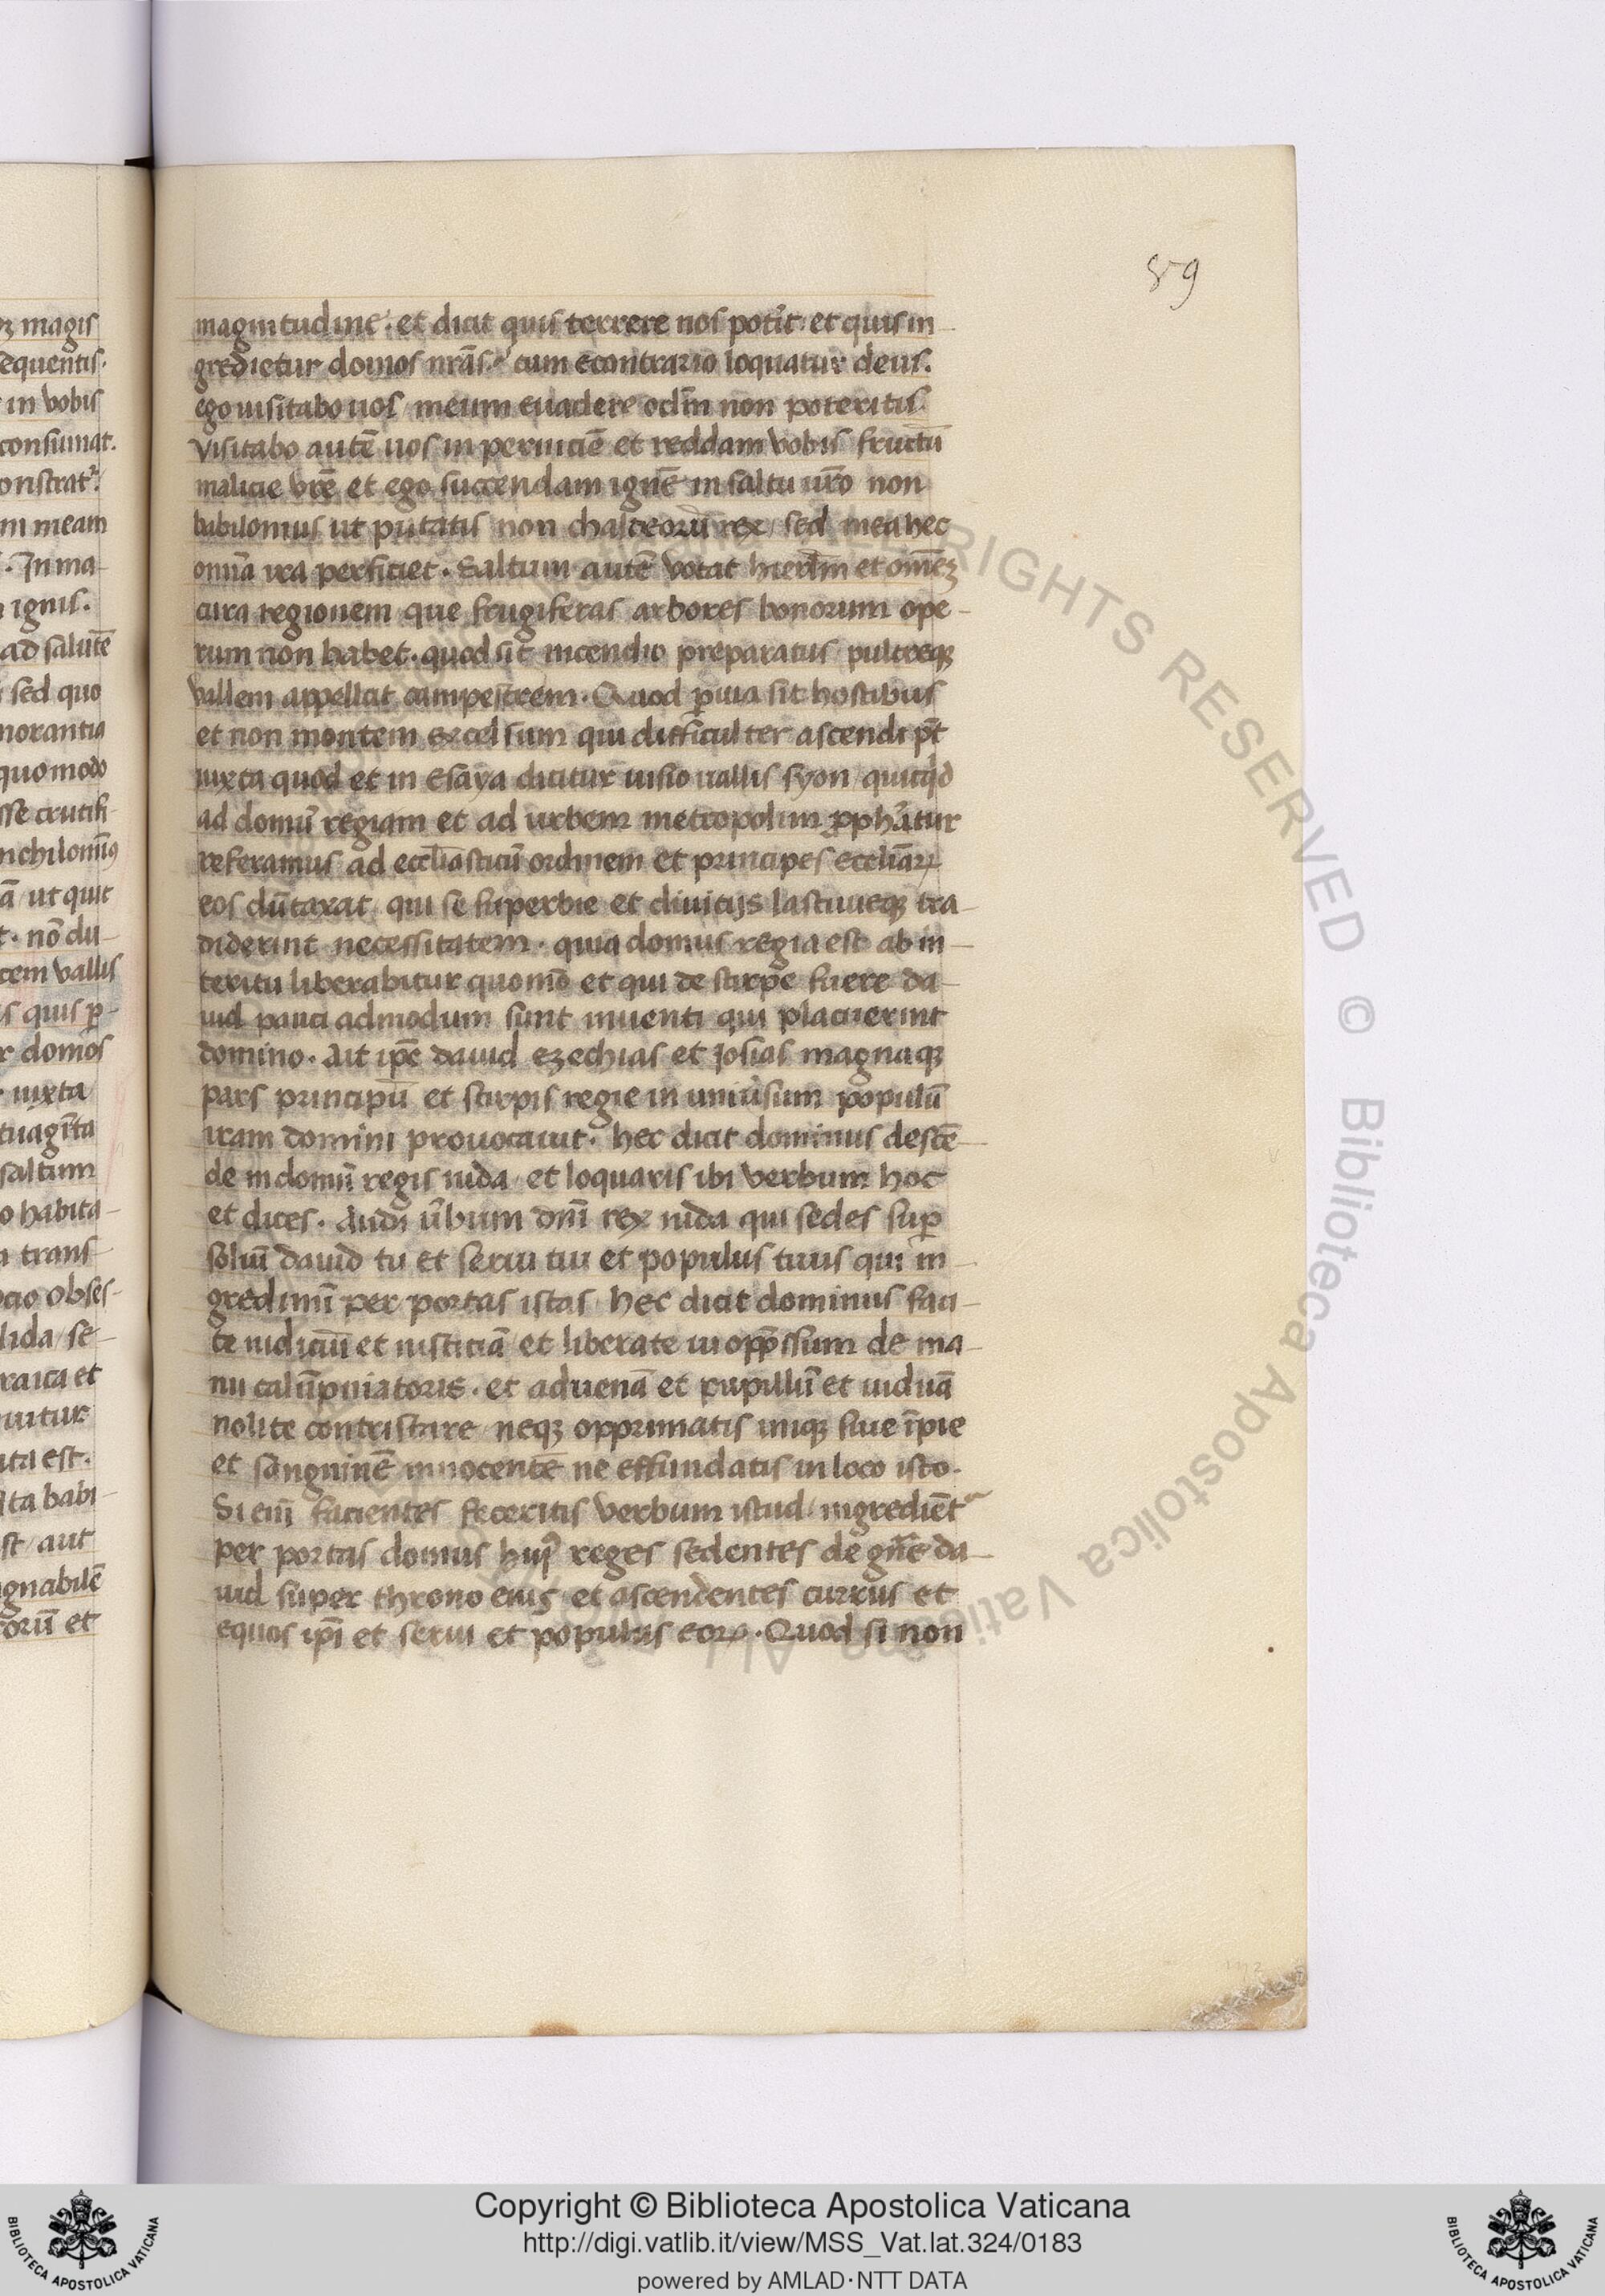 z magis
sequentis.
in vobis
consumat.
onstrat᷑.
m meam
. In ma-
ignis.
ad salutē
sed quo
norantia
quomodo
sse crucifi-
nichilominꝰ
ā ut quit
t. nō du-
tem vallis
is quis ꝑ-
r domos
iuxta
tuaginta
saltum
o habita-
a trans-
ocio obses-
lida / se-
raica et
uitur
ita est.
ita babi-
st / aut
gnabilē
torū et
89
magnitudine. et dicit quis terrere nos potīt. et quis in-
gredietur domos nr̄as. cum econtrario loquatur deus.
ego uisitabo uos / meum euadere odm̄ non poteritis.
visitabo autē uos in perniciē et reddam vobis fructū
malicie vrē et ego succendam ignē in saltu vr̄o non
babilonius ut putatis non chaldeorū rex / sed mea hec
omīa ira perficiet. Saltum autē vocat hierlm̄ et om̄eꝫ
circa regionem que frugiferas arbores bonorum ope-
rum non habet. quod sit incendio preparatus pulcreqꝫ
vallem appellat campestrem. Quod ꝑuia sit hostibus
et non montem excelsum qui difficulter ascendi pt̄
iuxta quod et in Esaya dicitur uisio uallis syon / quicqd
ad domū regiam et ad urbem metropolim ꝓphātur
referamus ad eccl̄iasticū ordinem et principes eccl̄iaꝝ
eos dūtaxat qui se superbie et diuitijs lasciuieqꝫ tra-
diderint necessitatem. quia domus regia est ab in-
teritu liberabitur quomō et qui de stirpe fuere da-
uid pauci admodum sunt inuenti qui placuerint
domino. Ut ipe dauid ezechias et Josias magnaqꝫ
pars principū et stirpis regie in uniūsum populū
iram domini prouocauit. hec dicit dominus descē-
de in domū regis iuda / et loquaris ibi verbum hoc
et dices. Audi ūbum dnī rex iuda qui sedes suꝑ
soliū dauid tu et serui tui et populus tuus qui in-
gredimī per portas istas / hec dicit dominus faci-
te iudiciū et iusticiā / et liberate ui opp̄ssum de ma-
nu calūpniatoris. et aduenā et pupillū et uiduā
nolite contristare neqꝫ opprimatis iniqꝫ siue īpie
et sanguinē innocentē ne effundatis in loco isto.
Si enī facientes feceritis verbum istud / ingrediēt᷑
per portas domus huiꝰ reges sedentes de gn̄e da-
uid super throno eius et ascendentes currus et
equos ipī et serui et populus eoꝝ. Quod si non
ALL RIGHTS RESERVED © Biblioteca Apostolica Vaticana
Copyright © Biblioteca Apostolica Vaticana
http://digi.vatlib.it/view/MSS_Vat.lat.324/0183
powered by AMLAD·NTT DATA
BIBLIOTECA APOSTOLICA VATICANA
BIBLIOTECA APOSTOLICA VATICANA